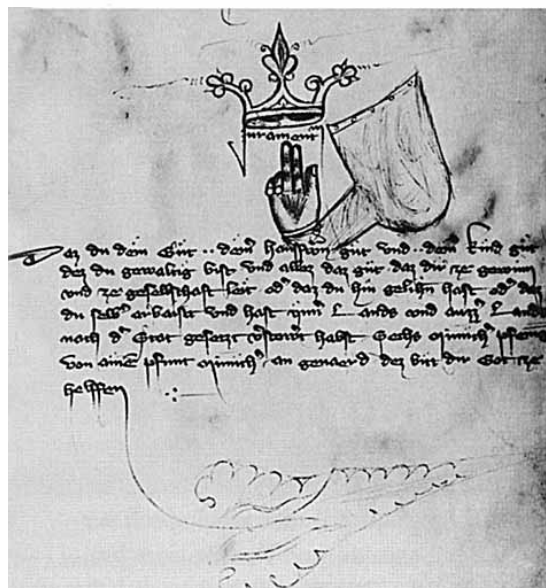 Jurament
Daz du dein Gut .. deinr hausfrown gut und .. deinr kind gut
dez du gewaltig bist und allez daz gut daz dir ze gewinn
und ze geselschaft leit od daz du hin gelihn hast od daz
du selb arbaist und hast inner Lands und auzz Lands
nach d Stat gesetzt habst Sechs münich pfenig
von ainē pfunt münich an genaerd dez bit dir Got ze
helffen